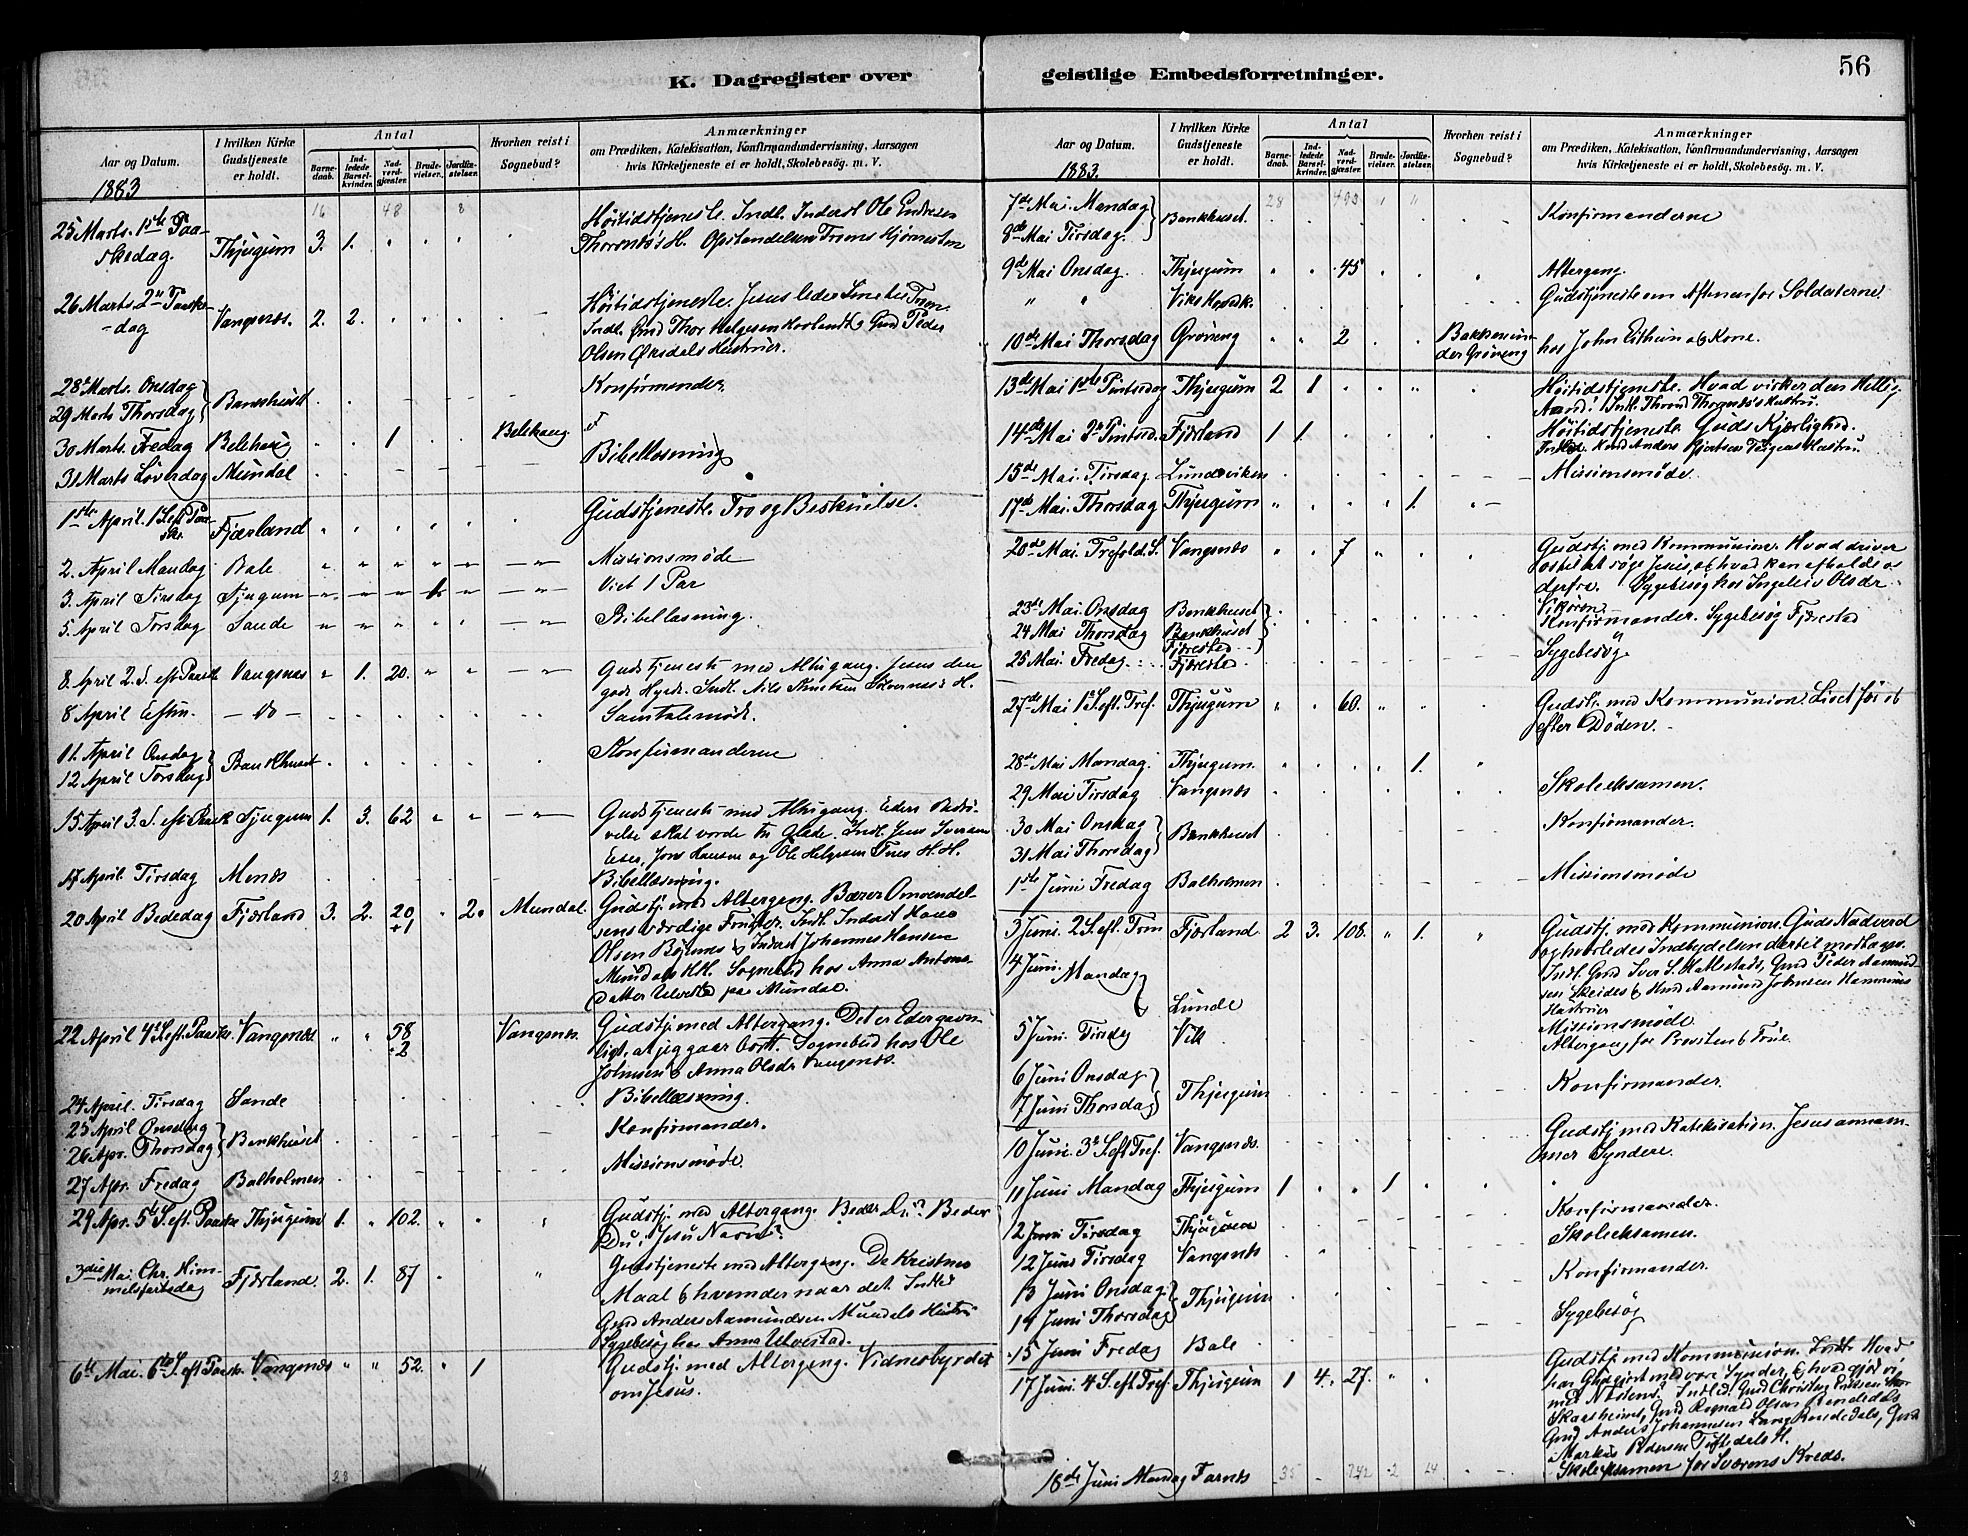 K. Dagregister over
Aar og Datum.
I hvilken Kirke Gudstjeneste er holdt.
Antal
Barnedaab.
Indledede Barselkvinder.
Nadverdgjæster.
Brudevielser.
Jordfæstelser.
Hvorhen reist i Sognebud?
Anmærkninger
om Prædiken, Katekisation, Konfirmandundervisning, Aarsagen
hvis Kirketjeneste ei er holdt, Skolebesøg. m. V.
1883
16 48 8
25 Marts. 1ste Paaskedag. Thjugum 3. 1. Høitidstjeneste. Indl. Inderst Ole Endresen
Thorsnæs's H. Opstandelsen Troens Hjørnesten
26 Marts. 2den Paaskedag Vangsnæs. 2. 2. Høitidstjeneste. Jesus leder
Indl. Gmd Thor Helgesen Gmd Peder
Olsen Hustruer.
28 Marts. Onsdag
29 Marts Thorsdag Bankhuset Konfirmander.
30 Marts. Fredag 1
31 Marts Løverdag Mundal Bibellæsning
1ste April. 1 S. eft Paaske. Fjærland Gudstjeneste. Tro og Beskuelse.
2. April Mandag Bale Missionsmøde
3. April Tirsdag Tjugum Viet 1 Par
5. April Torsdag Sande Bibellæsning.
8. April 2. S. eft Paask Vangsnæs 1. 20. Gudstjeneste med Altergang. Jesus den
gode Hyrde. Indl. Nils H.
8 April Eftm. - Do - Samtalemøde.
11. April Onsdag
12 April Torsdag Bankhuset Konfirmanderne
15 April 3. S. eft Paask Tjugum 1. 3. 62 Gudstjeneste med Altergang. Eders Bedrøvelse
skal vorde til Glæde. Indl. Jens Iversen
Esse, Jons Hansen og Ole Helgesen H. H.
17 April. Tirsdag Menæs Bibellæsning.
20 April Bededag Fjærland 3. 2. 20 +1 2. Mundal Gudstj. med Altergang. Bærer Omvendelsens
værdige Frugter. Indl. Inderst Hans
Olsen Bøjums & Inderst Johannes Hansen
Mundals HH. Sognebud hos Anna Antonsdatter
Ulvestad paa Mundal.
22 April 4 S. eft. Paaske. Vangsnæs 58 +2 Vangsnæs. Gudstj. med Altergang. Det er Eder gavnligt,
at jeg gaar bort. Sognebud hos Ole
Johnsen & Anna Olsdr Vangsnæs.
24 April. Tirsdag Sande Bibellæsning.
25 April Onsdag
26 Apr. Thorsdag Bankhuset Konfirmander.
27 Apr. Fredag Balholmen Missionsmøde
29 Apr. 5te S. eft. Paaske Thjugum 1. 102. Gudstj. med Altergang. Beder Du? Beder
Du i Jesu Navn?
3die Mai. Chr. Himmelfartsdag Fjærland. 2. 1. 87 Gudstjeneste med Altergang. De Kristnes
Maal & hvem der naar det. Indled
Gmd Anders Aamundsen Mundals Hustru
Sygebesøg hos Anna Ulvestad.
6te Mai. 6te S. eft Paask. Vangsnæs 52. 1 Gudstj. med Altergang. Vidnesbyrdet
om Jesus.
23 11
geistlige Embedsforretninger.
56
Aar og Datum.
I hvilken Kirke Gudstjeneste er holdt.
Antal
Barnedaab.
Indledede Barselkvinder.
Nadverdgjæster.
Brudevielser.
Jordfæstelser.
Hvorhen reist i Sognebud?
Anmærkninger
om Prædiken, Katekisation, Konfirmandundervisning, Aarsagen
hvis Kirketjeneste ei er holdt, Skolebesøg. m. V.
1883.
28
7de Mai. Mandag
8de Mai Tirsdag. Bankhuset. Konfirmanderne
9de Mai Onsdag. Thjugum 45 Altergang.
" " Viks Gudstjeneste om Aftenen for Soldaterne.
10de Mai Thorsdag Grøneng 2 Bakken under Grøneng hos John og Kone.
13de Mai 1ste Pintsedag Thjugum 2 1 Høitidstjeneste. Hvad virker den Hellig
Aand? Indl. Thrond Hustru.
14de Mai 2den Pintsed. Fjærland 1 1. Høitidstjeneste Guds Kjærlighed.
Anders Hustru
15de Mai. Tirsdag Lundeviken Missionsmøde.
17de Mai. Thorsdag Thjugum 1.
20de Mai. Trefold. S. Vangsnæs 7 Gudstj. med Kommunion. Hvad driver
os til at søge Jesus, og hvad kan afholde os
derfra. Sygebesøg hos Ingeleiv Olsdr.
Vikøren.
23de Mai. Onsdag Bankhuset
24 Mai Thorsdag Bankhuset Konfirmander. Sygebesøg Fjærestad
25 Mai. Fredag Fjærestad Sygebesøg.
27de Mai 1 S. eft. Tref. Thjugum 60. Gudstj. med Kommunion. Livet før og
efter Døden.
28de Mai Mandag. Thjugum 1.
29 Mai Tirsdag Vangsnæs Skoleeksamen.
30 Mai Onsdag
31 Mai Thorsdag Bankhuset Konfirmander.
1ste Juni Fredag Balholmen Missionsmøde
3 Juni. 2 S. eft. Tref Fjærland 2 3. 108. 1. Gudstj. med Kommunion. Guds Nadverd
og hvorledes Indbydelsen dertil modtages.
Indl. Gmd Iver S. Gmd Peder Aamundsen
Skeides & Hmd Aamund Johnsen
Hustruer
4 Juni. Mandag Lunde Missionsmøde
5 Juni. Tirsdag Vik Altergang for Provsten & Frue.
6 Juni Onsdag
7 Juni Thorsdag Thjugum Konfirmander.
10 Juni. 3 S. eft Tref. Vangsnæs. Gudstj. med Katekisation. Jesus annammer
Syndere.
11 Juni Mandag Thjugum 1 1
12 Juni Tirsdag Thjugum Konfirmander.
12 Juni Tirsdag Vangsnæs Skoleeksamen.
13 Juni Onsdag
14 Juni Thorsdag Thjugum Konfirmander.
15 Juni Fredag Bale Sygebesøg
17 Juni. 4 S. eft Tref. Thjugum 1 4. 27. Gudstj. med Kommunion. Hvad
har Gud gjort med vore Synder, & hvad gjør vi
med Næstens? Indled. Gmd Christen Eriksen
Gmd Rognald Olsen
Gmd Anders Johannesen Gmd
Markus Pedersen H.
18de Juni Mandag Farnæs 35 242 2 14 Skoleeksamen for Sværens Kreds.